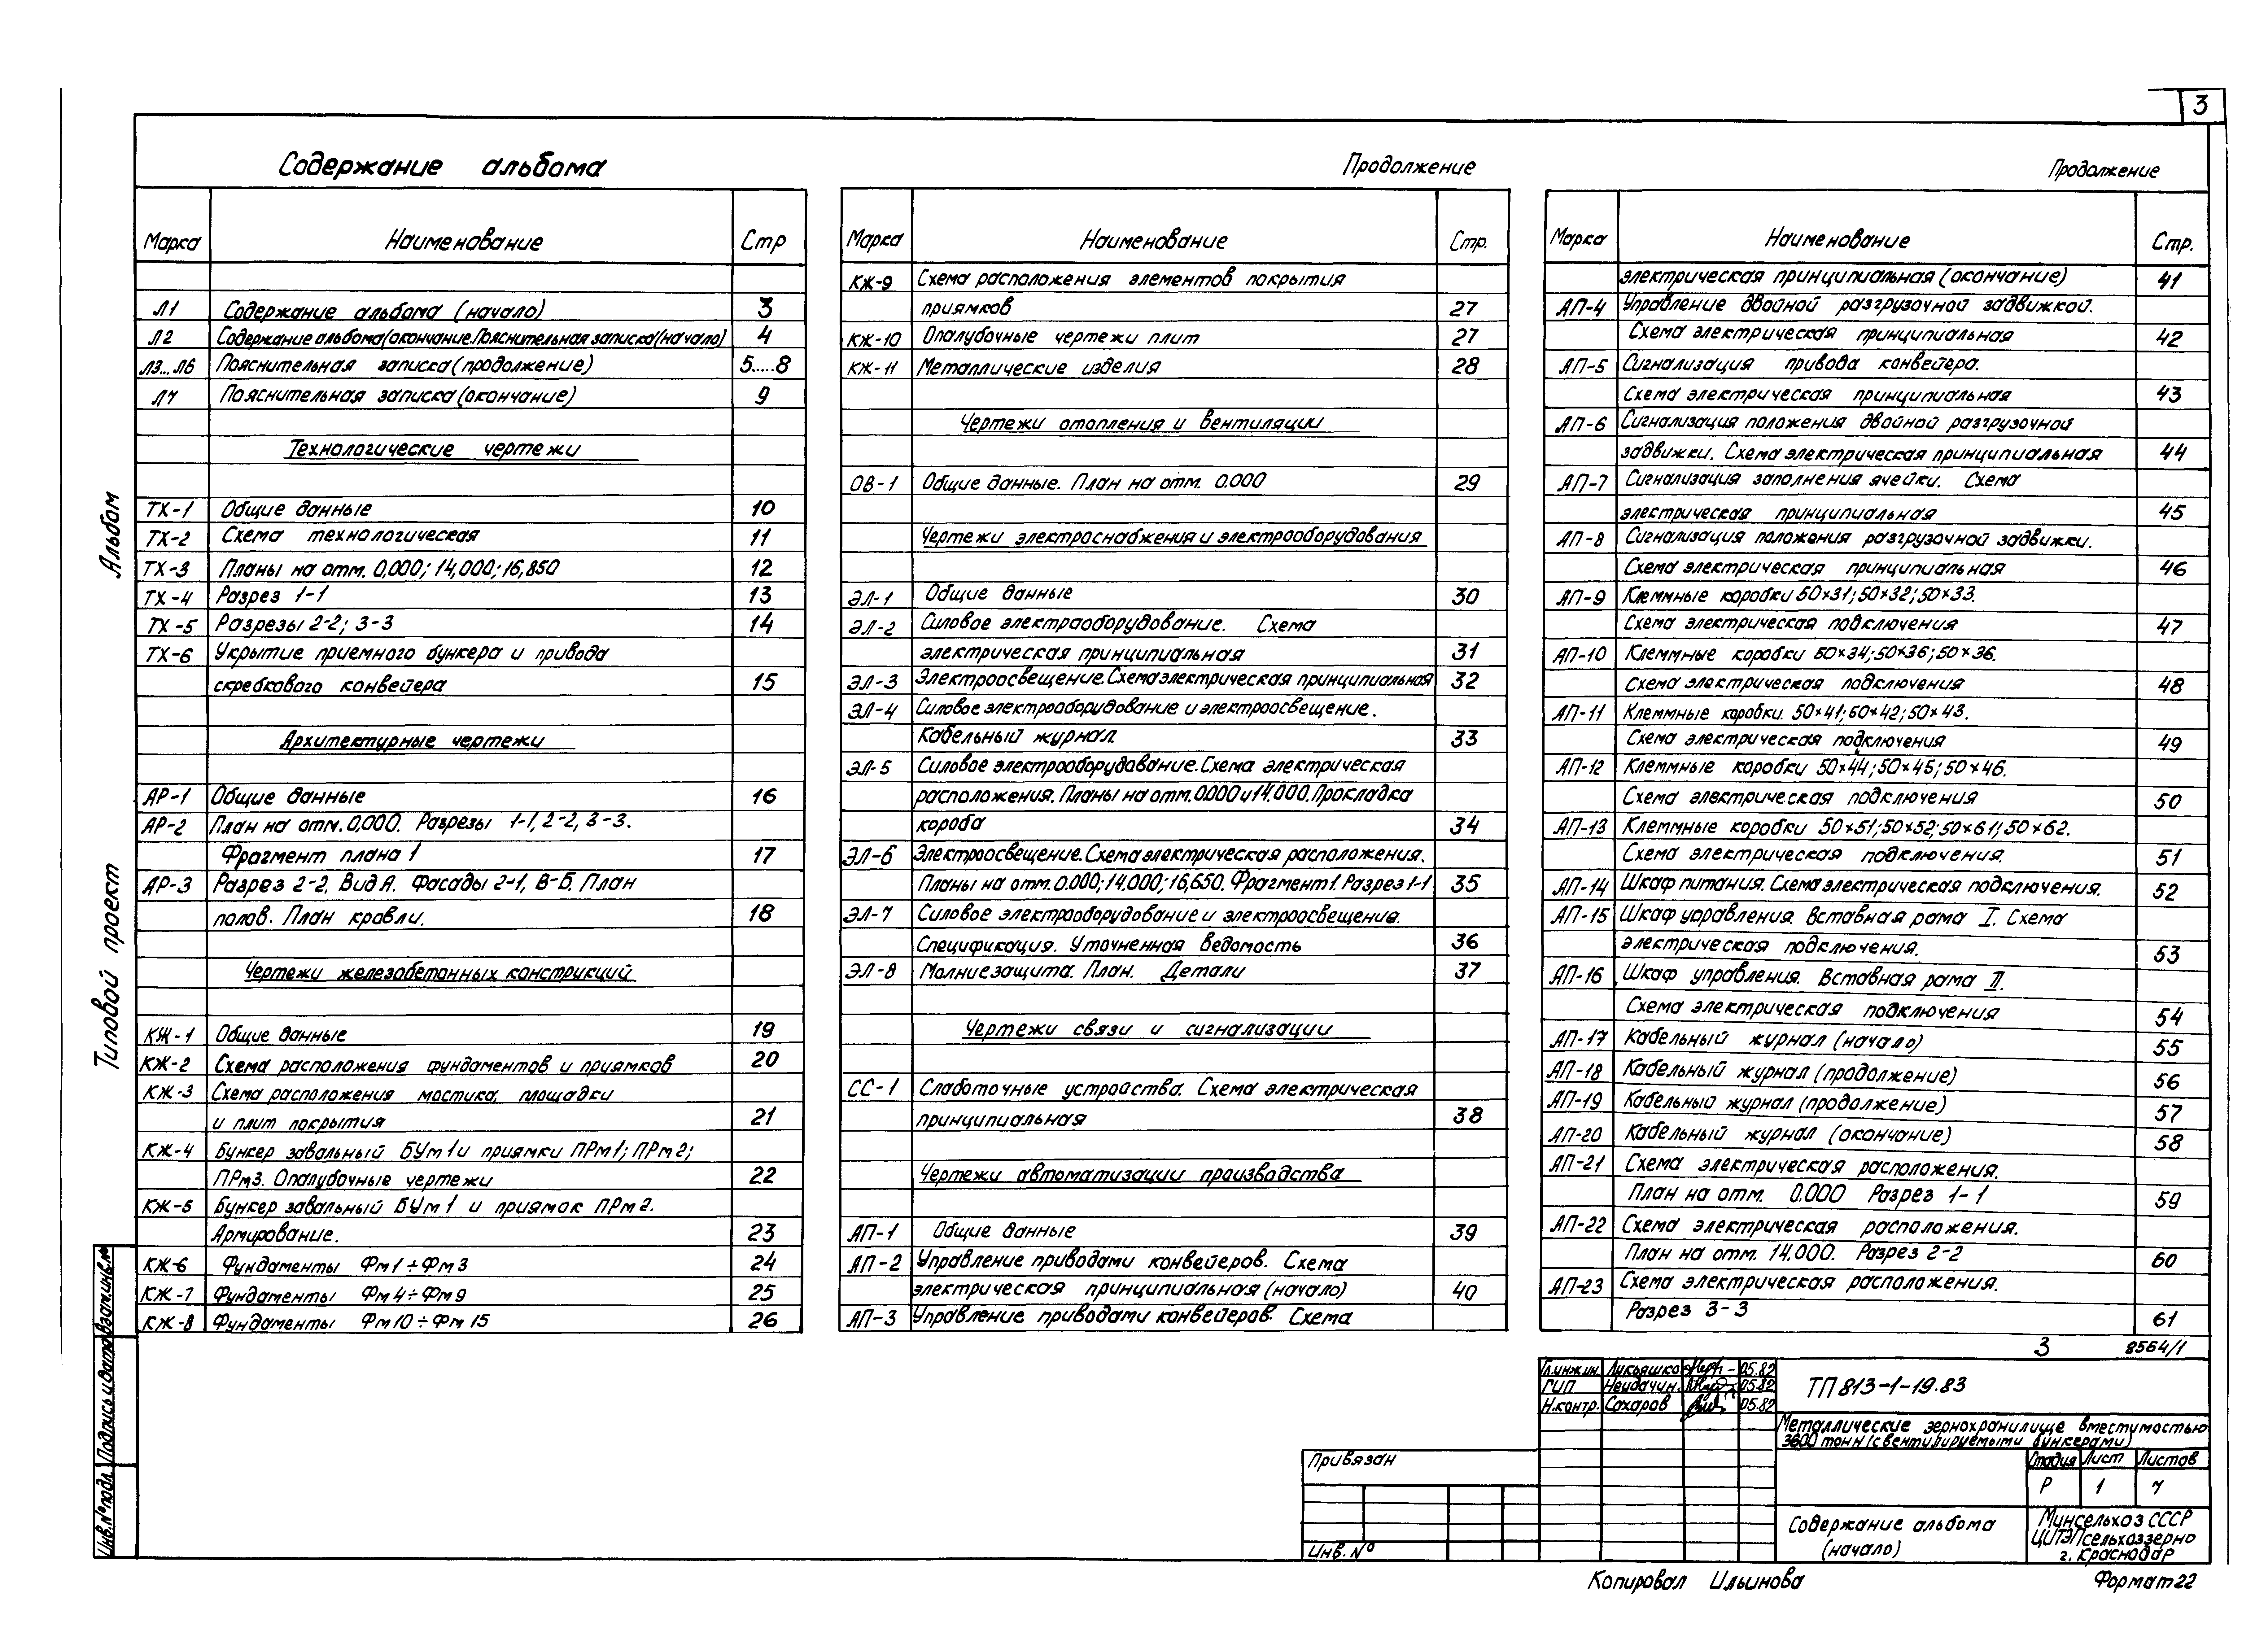 3
Содержание альбома
Марка Наименование Стр
Л1 Содержание альбома (начало) 3
Л2 Содержание альбома (окончание. Пояснительная записка (начало) 4
Л3...Л6 Пояснительная записка (продолжение) 5.....8
Л7 Пояснительная записка (окончание) 9
Технологические чертежи
ТХ-1 Общие данные 10
ТХ-2 Схема технологическая 11
ТХ-3 Планы на отм. 0,000; 14,000; 16,850 12
ТХ-4 Разрез 1-1 13
ТХ-5 Разрезы 2-2; 3-3 14
ТХ-6 Укрытие приемного бункера и привода
скребкового конвейера 15
Архитектурные чертежи
АР-1 Общие данные 16
АР-2 План на отм. 0,000. Разрезы 1-1, 2-2, 3-3.
Фрагмент плана 1 17
АР-3 Разрез 2-2, Вид А. Фасады 2-1, В-Б. План
полов. План кровли. 18
Чертежи железобетонных конструкций
КЖ-1 Общие данные 19
КЖ-2 Схема расположения фундаментов и приямков 20
КЖ-3 Схема расположения мостика, площадки
и плит покрытия 21
КЖ-4 Бункер завальный БУм1 и приямки ПРм1; ПРм2;
ПРм3. Опалубочные чертежи 22
КЖ-5 Бункер завальный БУм1 и приямок ПРм2.
Армирование. 23
КЖ-6 Фундаменты Фм1÷Фм3 24
КЖ-7 Фундаменты Фм4÷Фм9 25
КЖ-8 Фундаменты Фм10÷Фм15 26
Продолжение
Марка Наименование Стр.
КЖ-9 Схема расположения элементов покрытия
приямков 27
КЖ-10 Опалубочные чертежи плит 27
КЖ-11 Металлические изделия 28
Чертежи отопления и вентиляции
ОВ-1 Общие данные. План на отм. 0.000 29
Чертежи электроснабжения и электрооборудования
ЭЛ-1 Общие данные 30
ЭЛ-2 Силовое электрооборудование. Схема
электрическая принципиальная 31
ЭЛ-3 Электроосвещение. Схема электрическая принципиальная 32
ЭЛ-4 Силовое электрооборудование и электроосвещение.
Кабельный журнал. 33
ЭЛ-5 Силовое электрооборудование. Схема электрическая
расположения. Планы на отм. 0.000 и 14.000. Прокладка
короба 34
ЭЛ-6 Электроосвещение. Схема электрическая расположения.
Планы на отм. 0.000; 14,000; 16,650. Фрагмент 1. Разрез 1-1 35
ЭЛ-7 Силовое электрооборудование и электроосвещение.
Спецификация. Уточненная ведомость 36
ЭЛ-8 Молниезащита. План. Детали 37
Чертежи связи и сигнализации
СС-1 Слаботочные устройства. Схема электрическая
принципиальная 38
Чертежи автоматизации производства
АП-1 Общие данные 39
АП-2 Управление приводами конвейеров. Схема
электрическая принципиальная (начало) 40
АП-3 Управление приводами конвейеров. Схема
Продолжение
Марка Наименование Стр.
электрическая принципиальная (окончание) 41
АП-4 Управление двойной разгрузочной задвижкой.
Схема электрическая принципиальная 42
АП-5 Сигнализация привода конвейера.
Схема электрическая принципиальная 43
АП-6 Сигнализация положения двойной разгрузочной
задвижки. Схема электрическая принципиальная 44
АП-7 Сигнализация заполнения ячейки. Схема
электрическая принципиальная 45
АП-8 Сигнализация положения разгрузочной задвижки.
Схема электрическая принципиальная 46
АП-9 Клеммные коробки 50×31; 50×32; 50×33.
Схема электрическая подключения 47
АП-10 Клеммные коробки 50×34; 50×36; 50×36.
Схема электрическая подключения 48
АП-11 Клеммные коробки. 50×41; 50×42; 50×43.
Схема электрическая подключения 49
АП-12 Клеммные коробки 50×44; 50×45; 50×46.
Схема электрическая подключения 50
АП-13 Клеммные коробки 50×51; 50×52; 50×61; 50×62.
Схема электрическая подключения. 51
АП-14 Шкаф питания. Схема электрическая подключения. 52
АП-15 Шкаф управления. Вставная рама I. Схема
электрическая подключения. 53
АП-16 Шкаф управления. Вставная рама II.
Схема электрическая подключения 54
АП-17 Кабельный журнал (начало) 55
АП-18 Кабельный журнал (продолжение) 56
АП-19 Кабельный журнал (продолжение) 57
АП-20 Кабельный журнал (окончание) 58
АП-21 Схема электрическая расположения.
План на отм. 0.000 Разрез 1-1 59
АП-22 Схема электрическая расположения.
План на отм. 14.000. Разрез 2-2 60
АП-23 Схема электрическая расположения.
Разрез 3-3 61
3 8564/1
Гл.инжин. Лукьяшко 05.82
ГИП Неудачин. 05.82
Н.контр. Сохаров 05.82
ТП 813-1-19.83
Металлические зернохранилище вместимостью
3600 тонн (с вентилируемыми бункерами)
Стадия Лист Листов
Р 1 7
Содержание альбома
(начало)
Минсельхоз СССР
ЦИТЭПсельхоззерно
г. Краснодар
Привязан
Инв. №
Копировал Ильинова
Формат 22
Типовой проект Альбом
Инв.№ подл. Подпись и дата Взам.инв.№